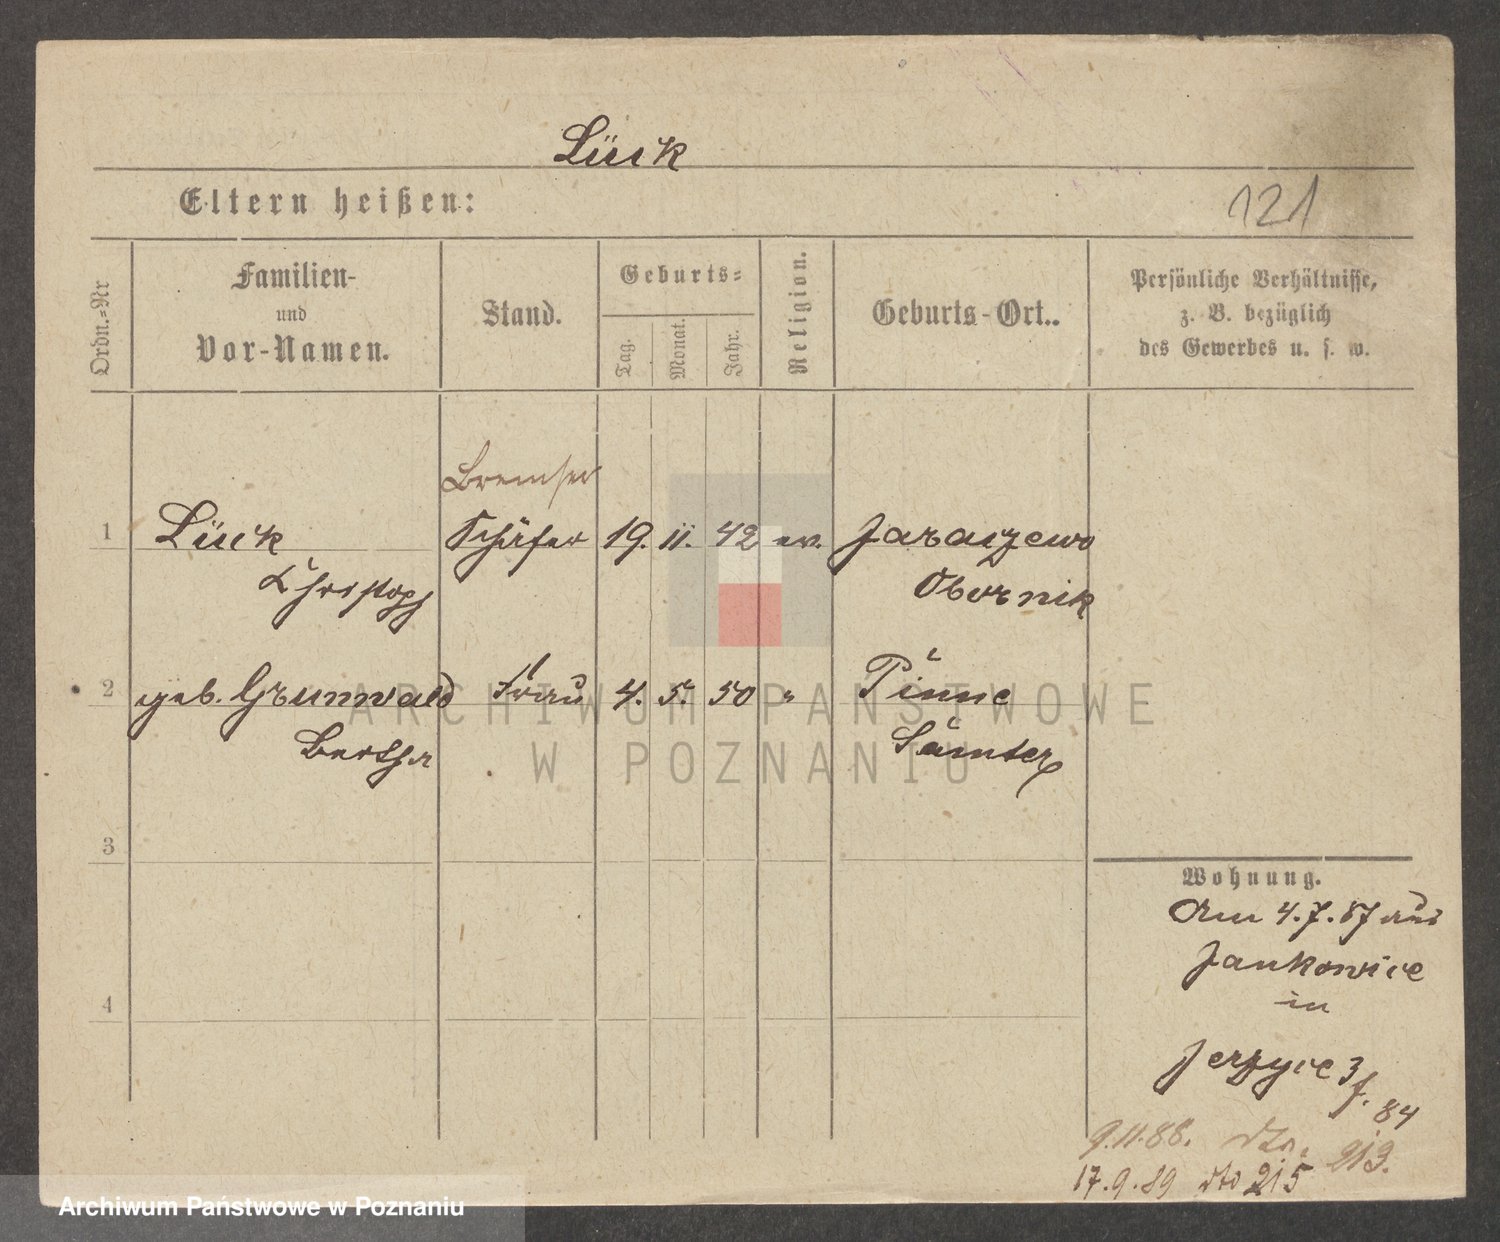 Lück
Eltern heißen:
121
Ordn.=Nr
Familien-
und
Vor-Namen.
Stand.
Geburts=
Tag.
Monat.
Jahr.
Religion.
Geburts-Ort..
Persönliche Verhältnisse,
z. B. bezüglich
des Gewerbes u. s. w.
Bremser
1 Lück Schäfer 19. 11. 42 ev. Jaraczewo
Christoph Obornik
2 geb. Grunwald Frau 4. 5. 50 " Pinne
Bertha Samter
3
Wohnung.
Am 4.7.87 aus
Jankowice
in
4
Jerzyce
84
9.11.88. dto. 213.
17.9.89 dto 215
ARCHIWUM PAŃSTWOWE
W POZNANIU
Archiwum Państwowe w Poznaniu